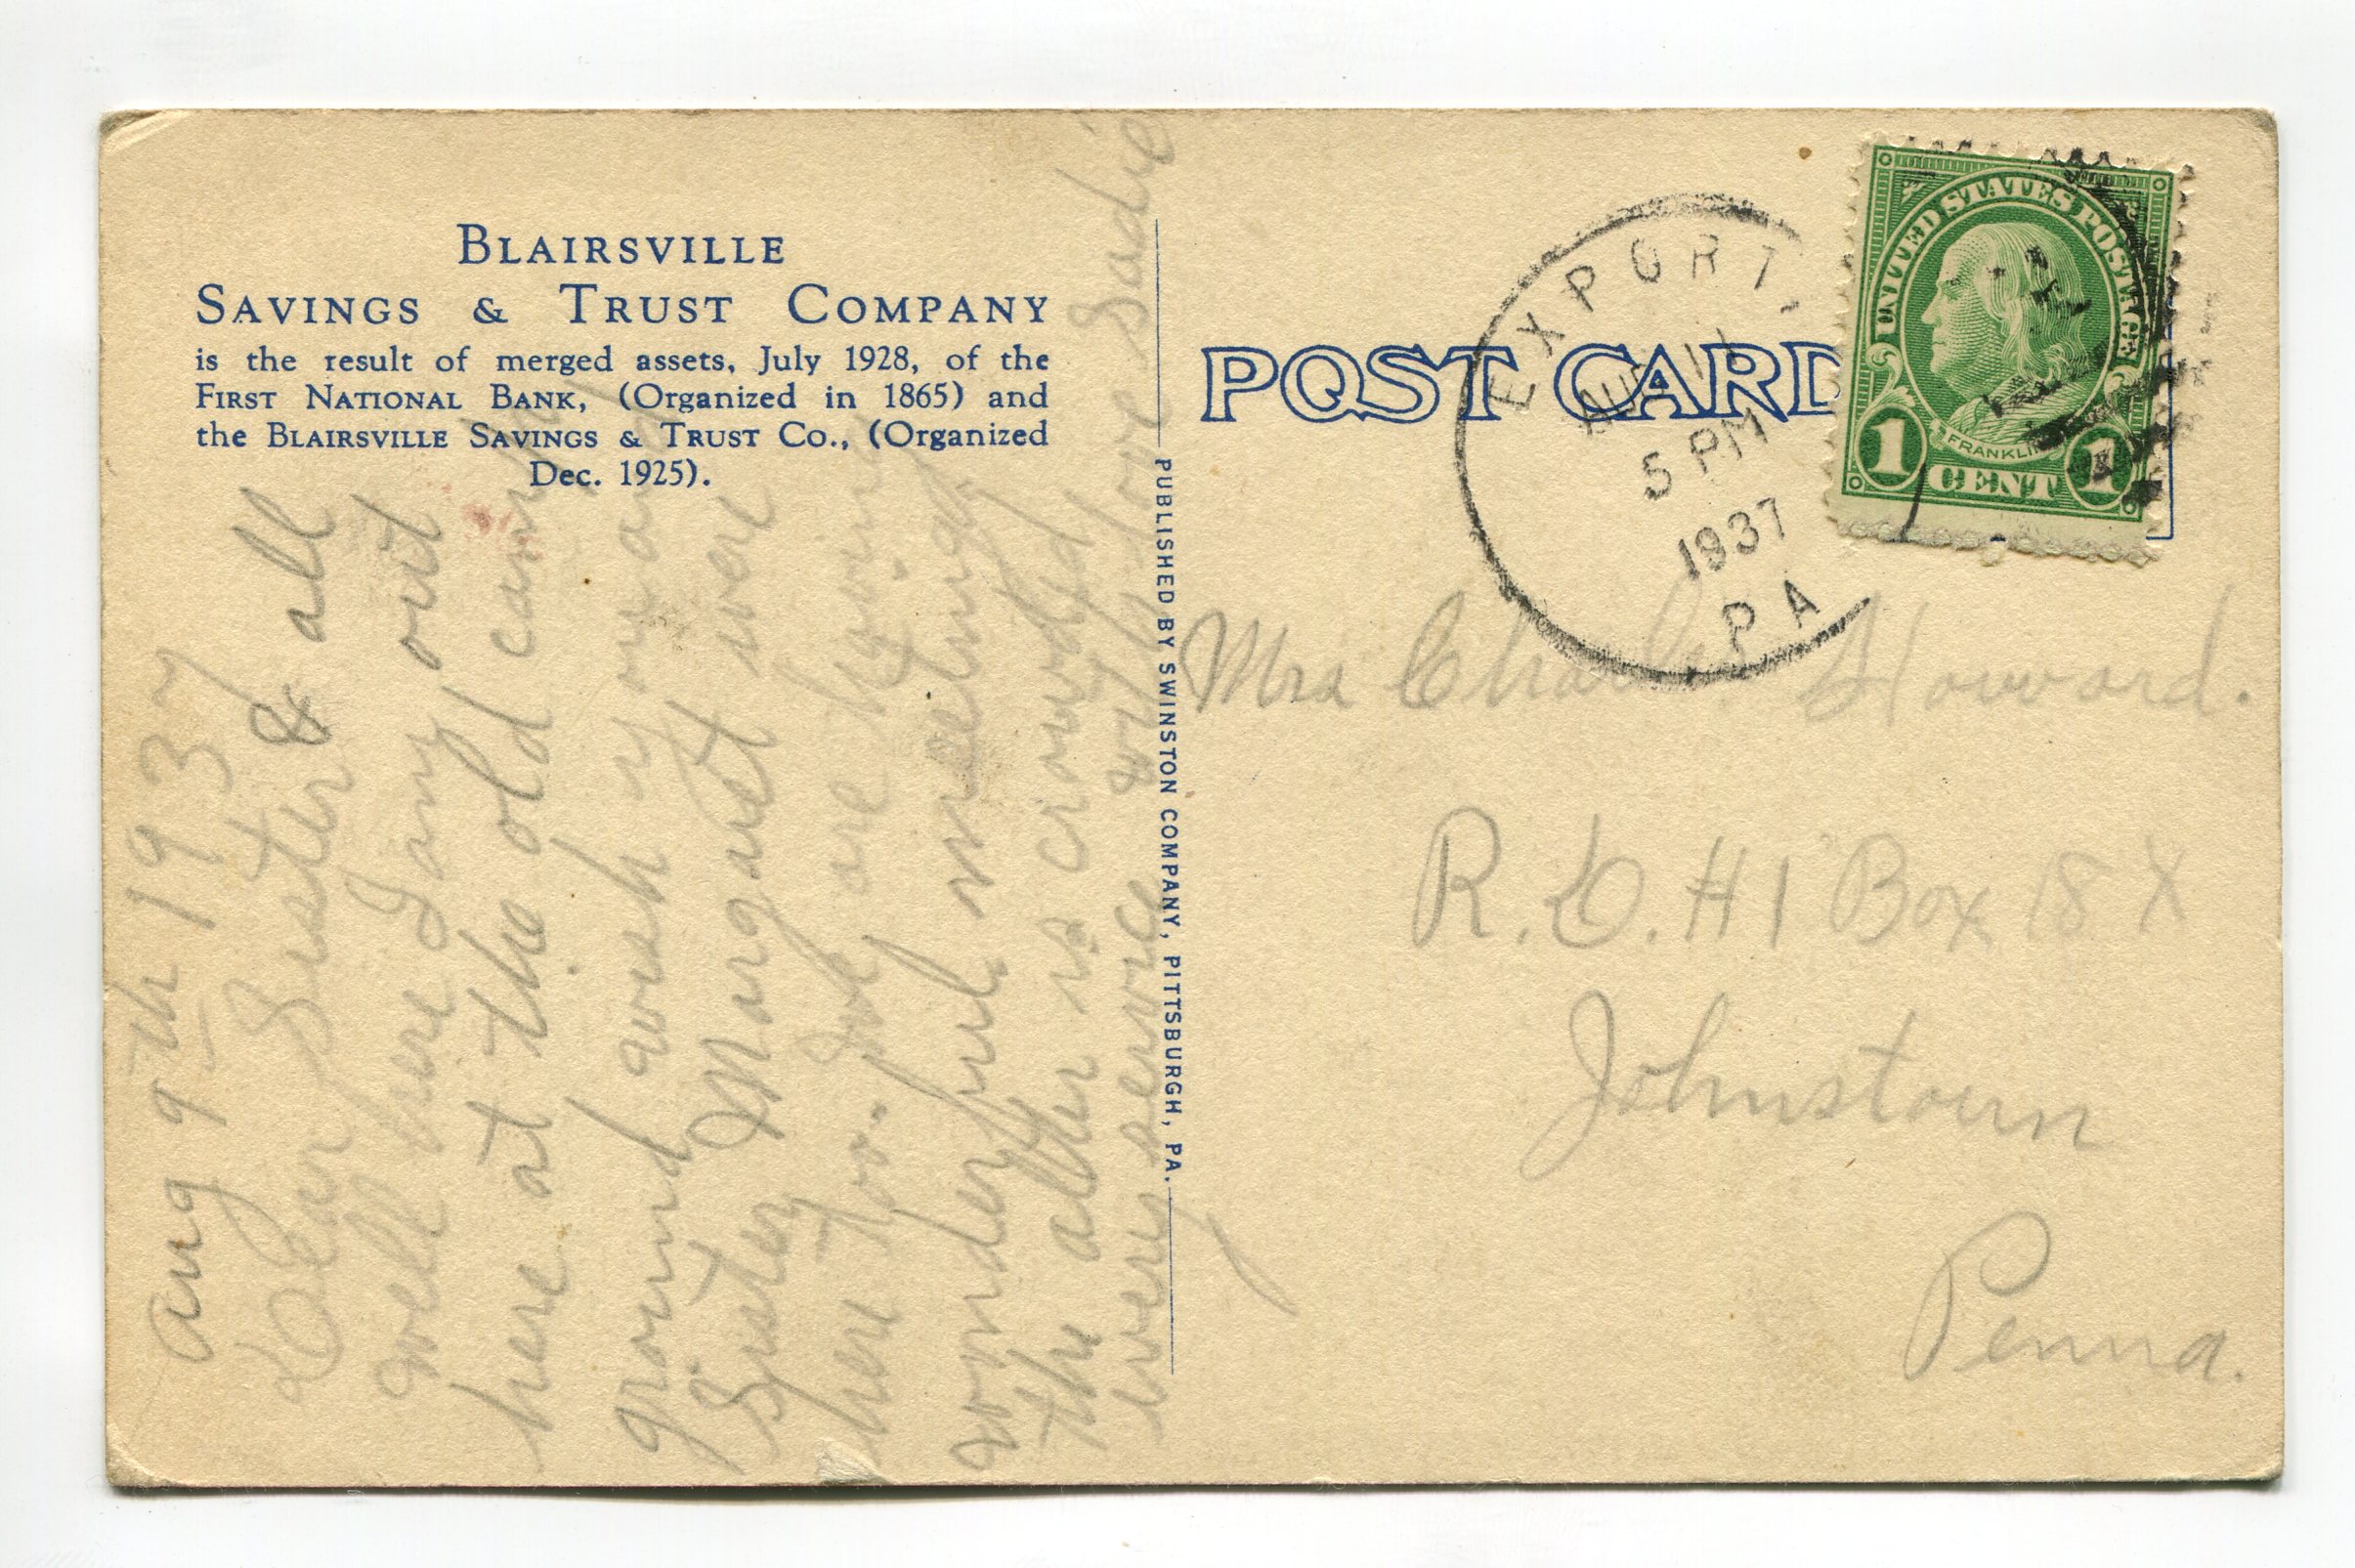 BLAIRSVILLE
SAVINGS & TRUST COMPANY
is the result of merged assets, July 1928, of the
FIRST NATIONAL BANK, (Organized in 1865) and
the BLAIRSVILLE SAVINGS & TRUST CO., (Organized
Dec. 1925).
Aug 9th 1937
Dear Sister & all
well here I am out
here at the old camp
ground wish you and
Sister Margaret were
here too. We are having
wonderful meetings
the alter is crowded
every service
love Sadie
PUBLISHED BY SWINSTON COMPANY, PITTSBURGH, PA.
POST CARD
EXPORT,
AUG 11
5 PM
1937
PA
UNITED STATES POSTAGE
FRANKLIN
1 CENT 1
Mrs Charles Howard.
R.D. #1 Box 18 X
Johnstown
Penna.